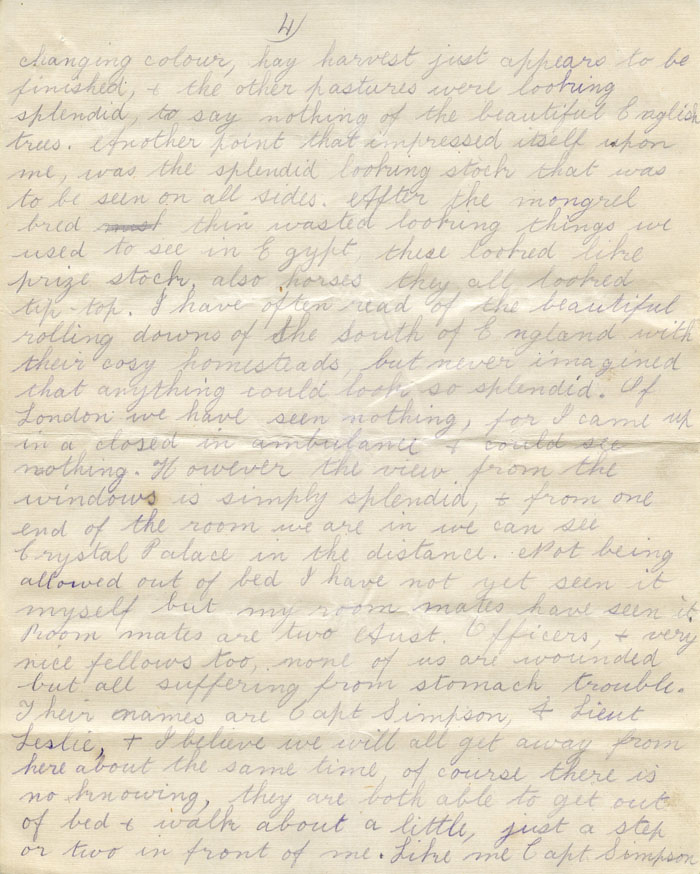 4)
changing colour, hay harvest just appears to be
finished, & the other pastures were looking
splendid, to say nothing of the beautiful English
trees. Another point that impressed itself upon
me, was the splendid looking stock that was
to be seen on all sides. After the mongrel
bred must thin wasted looking things we
used to see in Egypt, these looked like
prize stock, also horses they all looked
tip-top. I have often read of the beautiful
rolling downs of the South of England with
their cosy homesteads, but never imagined
that anything could look so splendid. Of
London we have seen nothing, for I came up
in a closed in ambulance & could see
nothing. However the view from the
windows is simply splendid, & from one
end of the room we are in we can see
Crystal Palace in the distance. Not being
allowed out of bed I have not yet seen it
myself but my room mates have seen it.
Room mates are two Aust. Officers, & very
nice fellows too, none of us are wounded
but all suffering from stomach trouble.
Their names are Capt Simpson, & Lieut
Leslie, & I believe we will all get away from
here about the same time, of course there is
no knowing, they are both able to get out
of bed & walk about a little, just a step
or two in front of me. Like me Capt Simpson